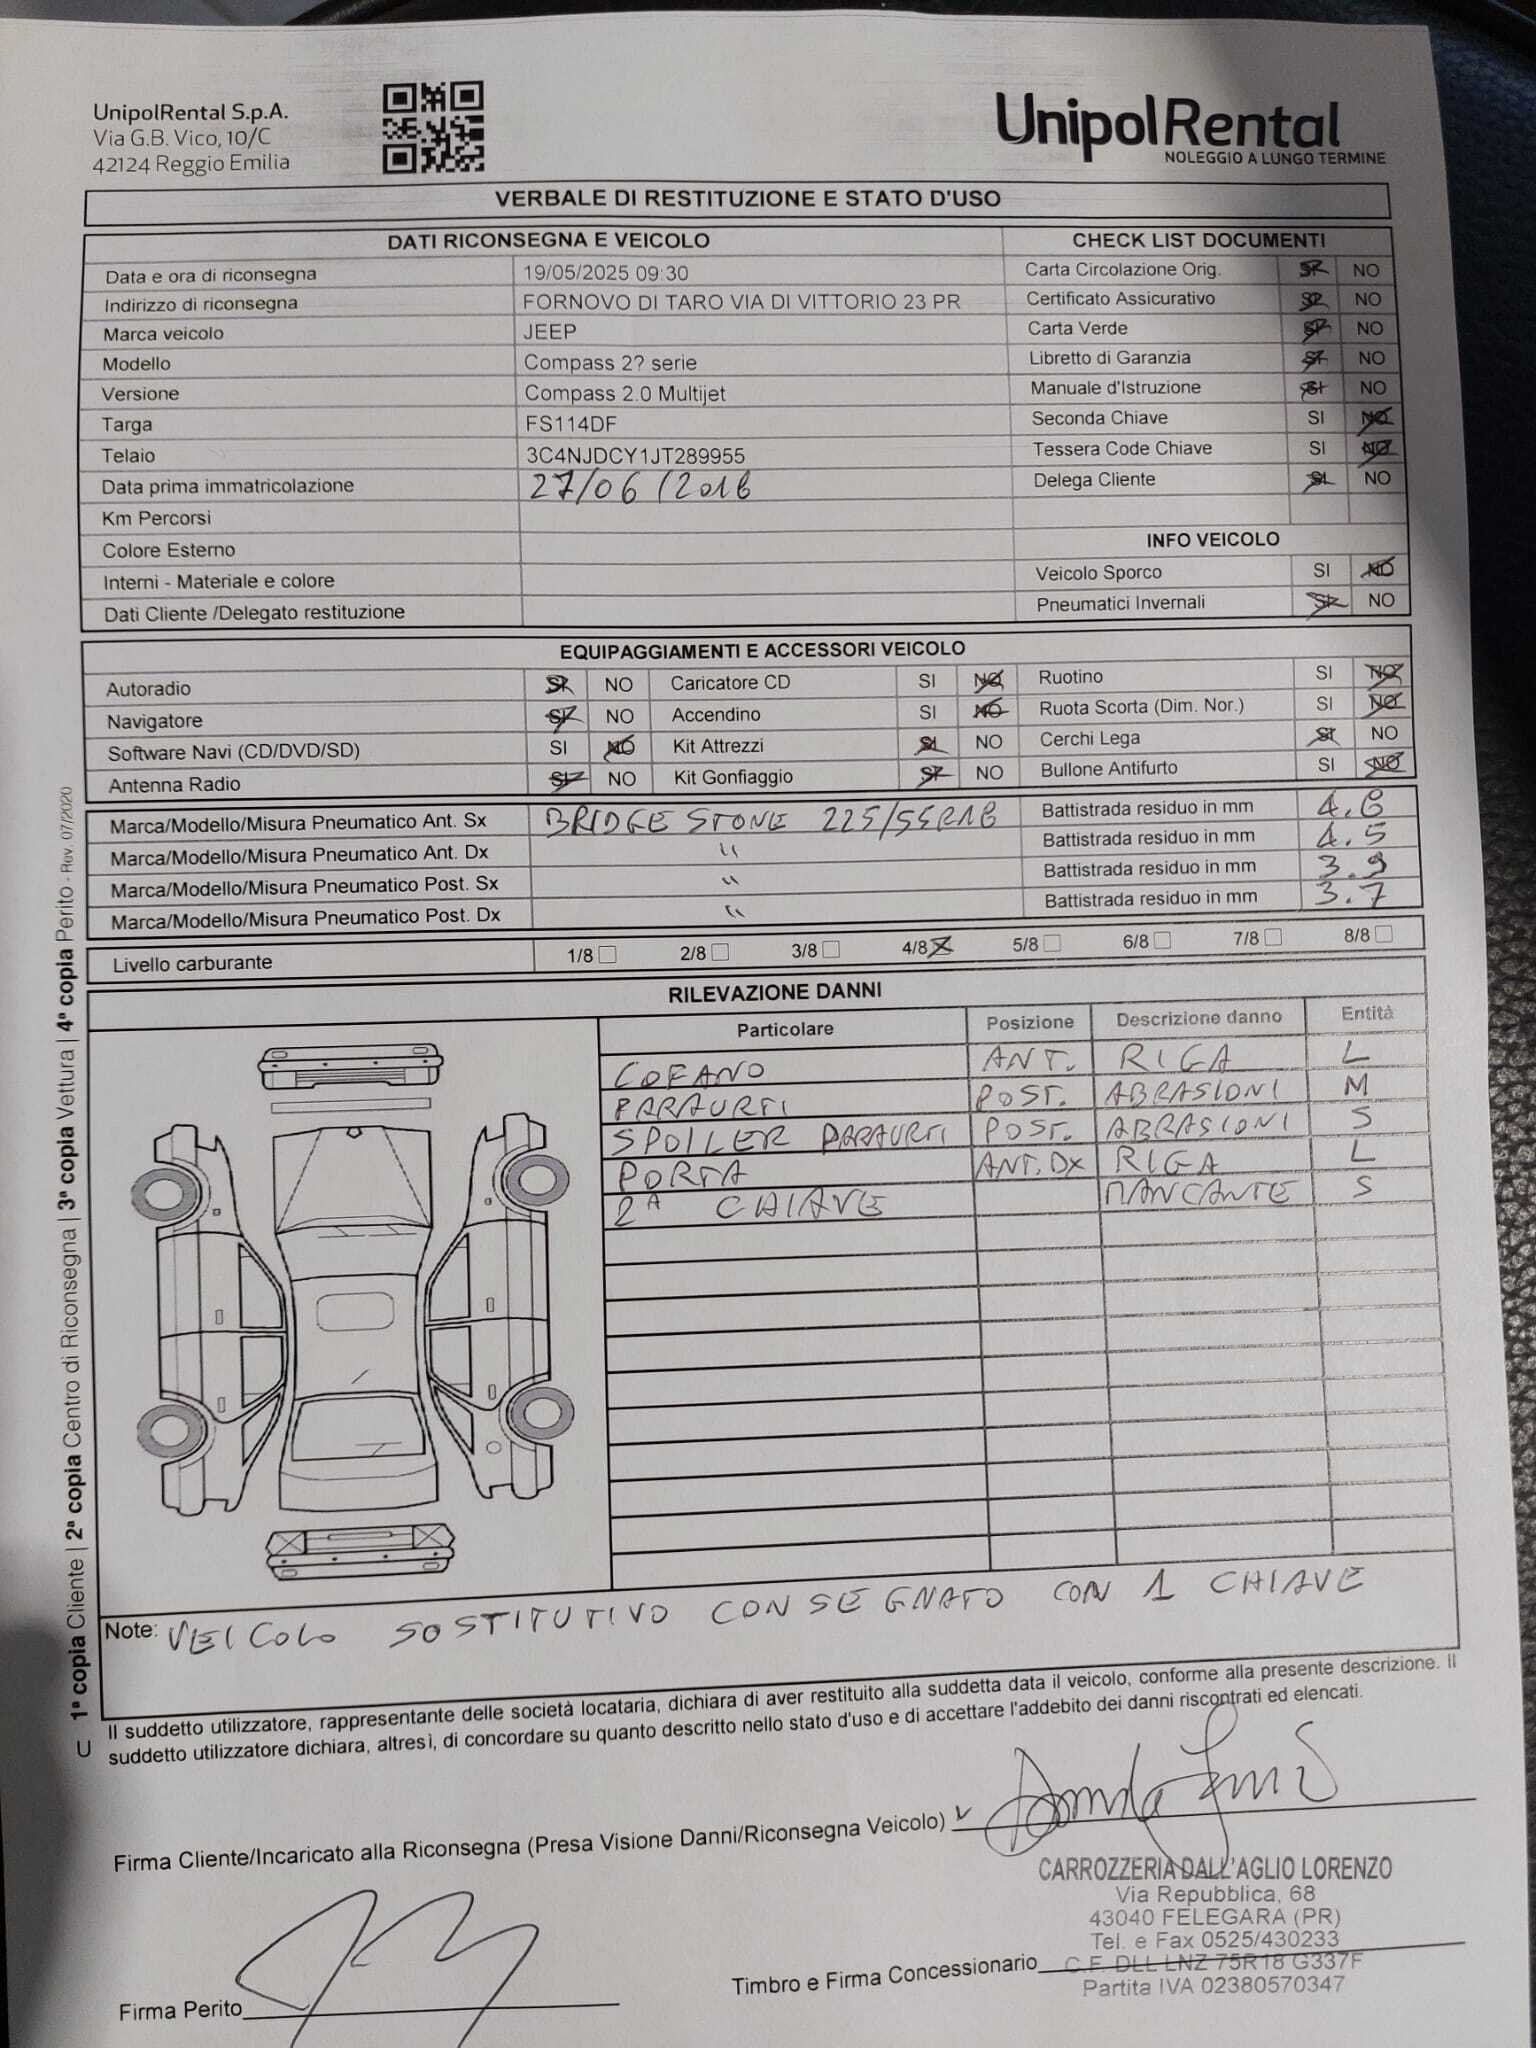 UnipolRental S.p.A.
Via G.B. Vico, 10/C
42124 Reggio Emilia
UnipolRental
NOLEGGIO A LUNGO TERMINE
VERBALE DI RESTITUZIONE E STATO D'USO
DATI RICONSEGNA E VEICOLO
Data e ora di riconsegna 19/05/2025 09:30
Indirizzo di riconsegna FORNOVO DI TARO VIA DI VITTORIO 23 PR
Marca veicolo JEEP
Modello Compass 2? serie
Versione Compass 2.0 Multijet
Targa FS114DF
Telaio 3C4NJDCY1JT289955
Data prima immatricolazione 27/06/2018
Km Percorsi
Colore Esterno
Interni - Materiale e colore
Dati Cliente /Delegato restituzione
CHECK LIST DOCUMENTI
Carta Circolazione Orig. SI NO
Certificato Assicurativo SI NO
Carta Verde SI NO
Libretto di Garanzia SI NO
Manuale d'Istruzione SI NO
Seconda Chiave SI NO
Tessera Code Chiave SI NO
Delega Cliente SI NO
INFO VEICOLO
Veicolo Sporco SI NO
Pneumatici Invernali SI NO
EQUIPAGGIAMENTI E ACCESSORI VEICOLO
Autoradio SI NO Caricatore CD SI NO Ruotino SI NO
Navigatore SI NO Accendino SI NO Ruota Scorta (Dim. Nor.) SI NO
Software Navi (CD/DVD/SD) SI NO Kit Attrezzi SI NO Cerchi Lega SI NO
Antenna Radio SI NO Kit Gonfiaggio SI NO Bullone Antifurto SI NO
Marca/Modello/Misura Pneumatico Ant. Sx BRIDGESTONE 225/55R18 Battistrada residuo in mm 4.6
Marca/Modello/Misura Pneumatico Ant. Dx " Battistrada residuo in mm 4.5
Marca/Modello/Misura Pneumatico Post. Sx " Battistrada residuo in mm 3.9
Marca/Modello/Misura Pneumatico Post. Dx " Battistrada residuo in mm 3.7
Livello carburante 1/8 2/8 3/8 4/8 5/8 6/8 7/8 8/8
RILEVAZIONE DANNI
Particolare Posizione Descrizione danno Entità
COFANO ANT. RIGA L
PARAURTI POST. ABRASIONI M
SPOILER PARAURTI POST. ABRASIONI S
PORTA ANT.DX RIGA L
2ª CHIAVE MANCANTE S
Note: VEICOLO SOSTITUTIVO CONSEGNATO CON 1 CHIAVE
Il suddetto utilizzatore, rappresentante delle società locataria, dichiara di aver restituito alla suddetta data il veicolo, conforme alla presente descrizione. Il
suddetto utilizzatore dichiara, altresì, di concordare su quanto descritto nello stato d'uso e di accettare l'addebito dei danni riscontrati ed elencati.
Firma Cliente/Incaricato alla Riconsegna (Presa Visione Danni/Riconsegna Veicolo)
CARROZZERIA DALL'AGLIO LORENZO
Via Repubblica, 68
43040 FELEGARA (PR)
Tel. e Fax 0525/430233
C.F. DLL LNZ 75R18 G337F
Partita IVA 02380570347
Timbro e Firma Concessionario
Firma Perito
U 1ª copia Cliente | 2ª copia Centro di Riconsegna | 3ª copia Vettura | 4ª copia Perito - Rev. 07/2020